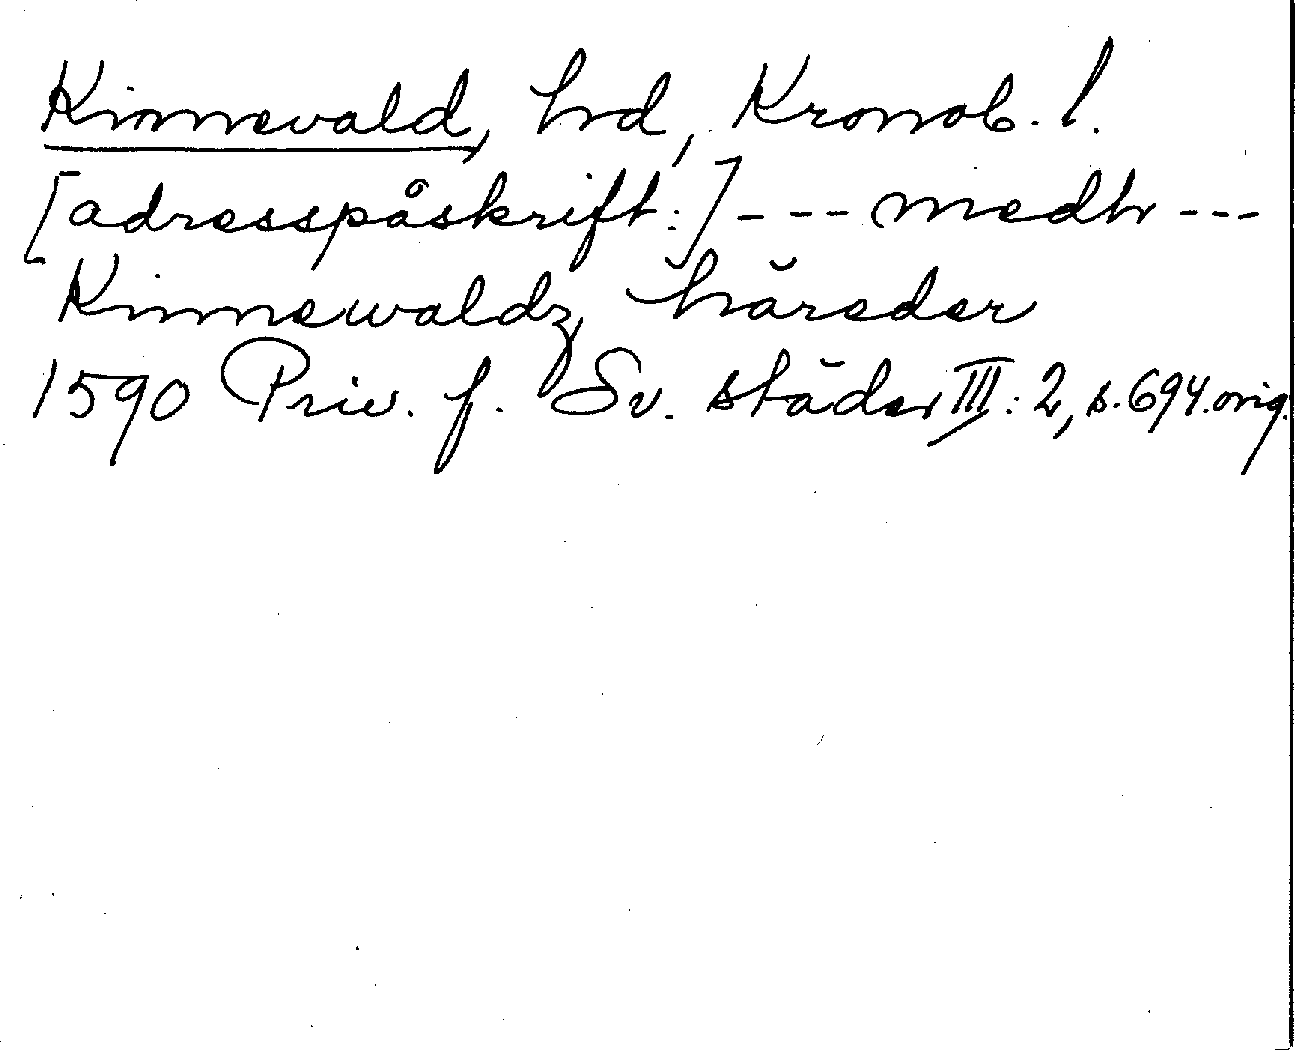 Kinnevald, hd, Kronob. l.
[adresspåskrift:] --- medh ---
Kinnewaldz häreder
1590 Priv. f. Sv. städer III: 2, s. 694. orig.